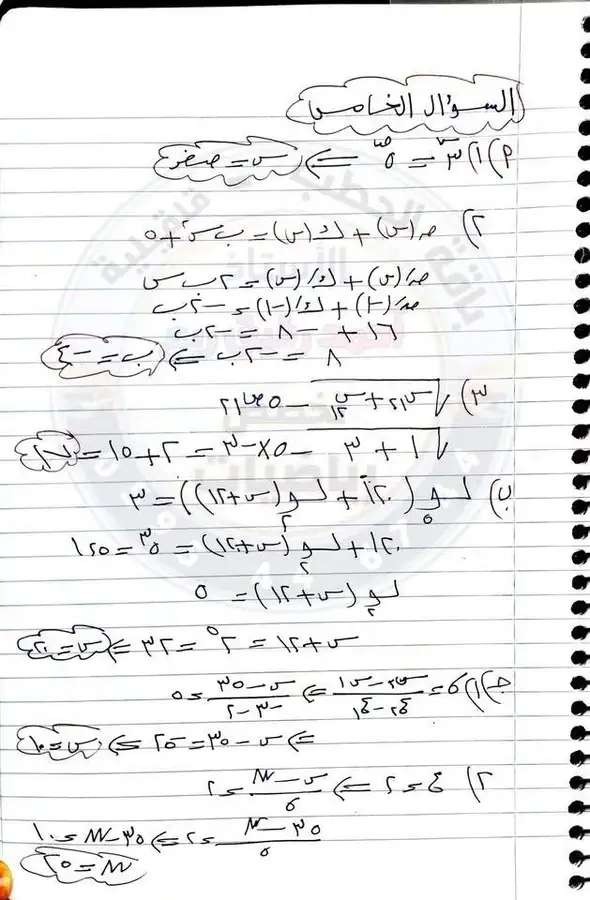 السؤال الخامس
م) ١) ٣^س = ٥^ص ⇐ س = صفر
٢) هـ(س) + ك(س) = ب س٢ + ٥
هـ/(س) + ك/(س) = ٢ ب س
هـ/(-١) + ك/(-١) = -٢ب
١٦ + -٨ = -٢ب
٨ = -٢ب ⇐ ب = -٤
٣) √س٢١ + س١٢ - ٥ص٢١
√١ + ٣ - ٥×-٣ = ٢ + ١٥ = ١٧
ب) لو٥(١٢٠ + لو٢(س+١٢)) = ٣
١٢٠ + لو٢(س+١٢) = ٥^٣ = ١٢٥
لو٢(س+١٢) = ٥
س+١٢ = ٢^٥ = ٣٢ ⇐ س = ٢٠
جـ) ١) σ = (س٢-س١)/(ع٢-ع١) ⇐ (س-٣٥)/(-٣-٢) = ٥
⇐ س-٣٥ = -٢٥ ⇐ س = ١٠
٢) ع = ٢ ⇐ (س-M)/σ = ٢
(٣٥-M)/٥ = ٢ ⇐ ٣٥-M = ١٠
M = ٢٥